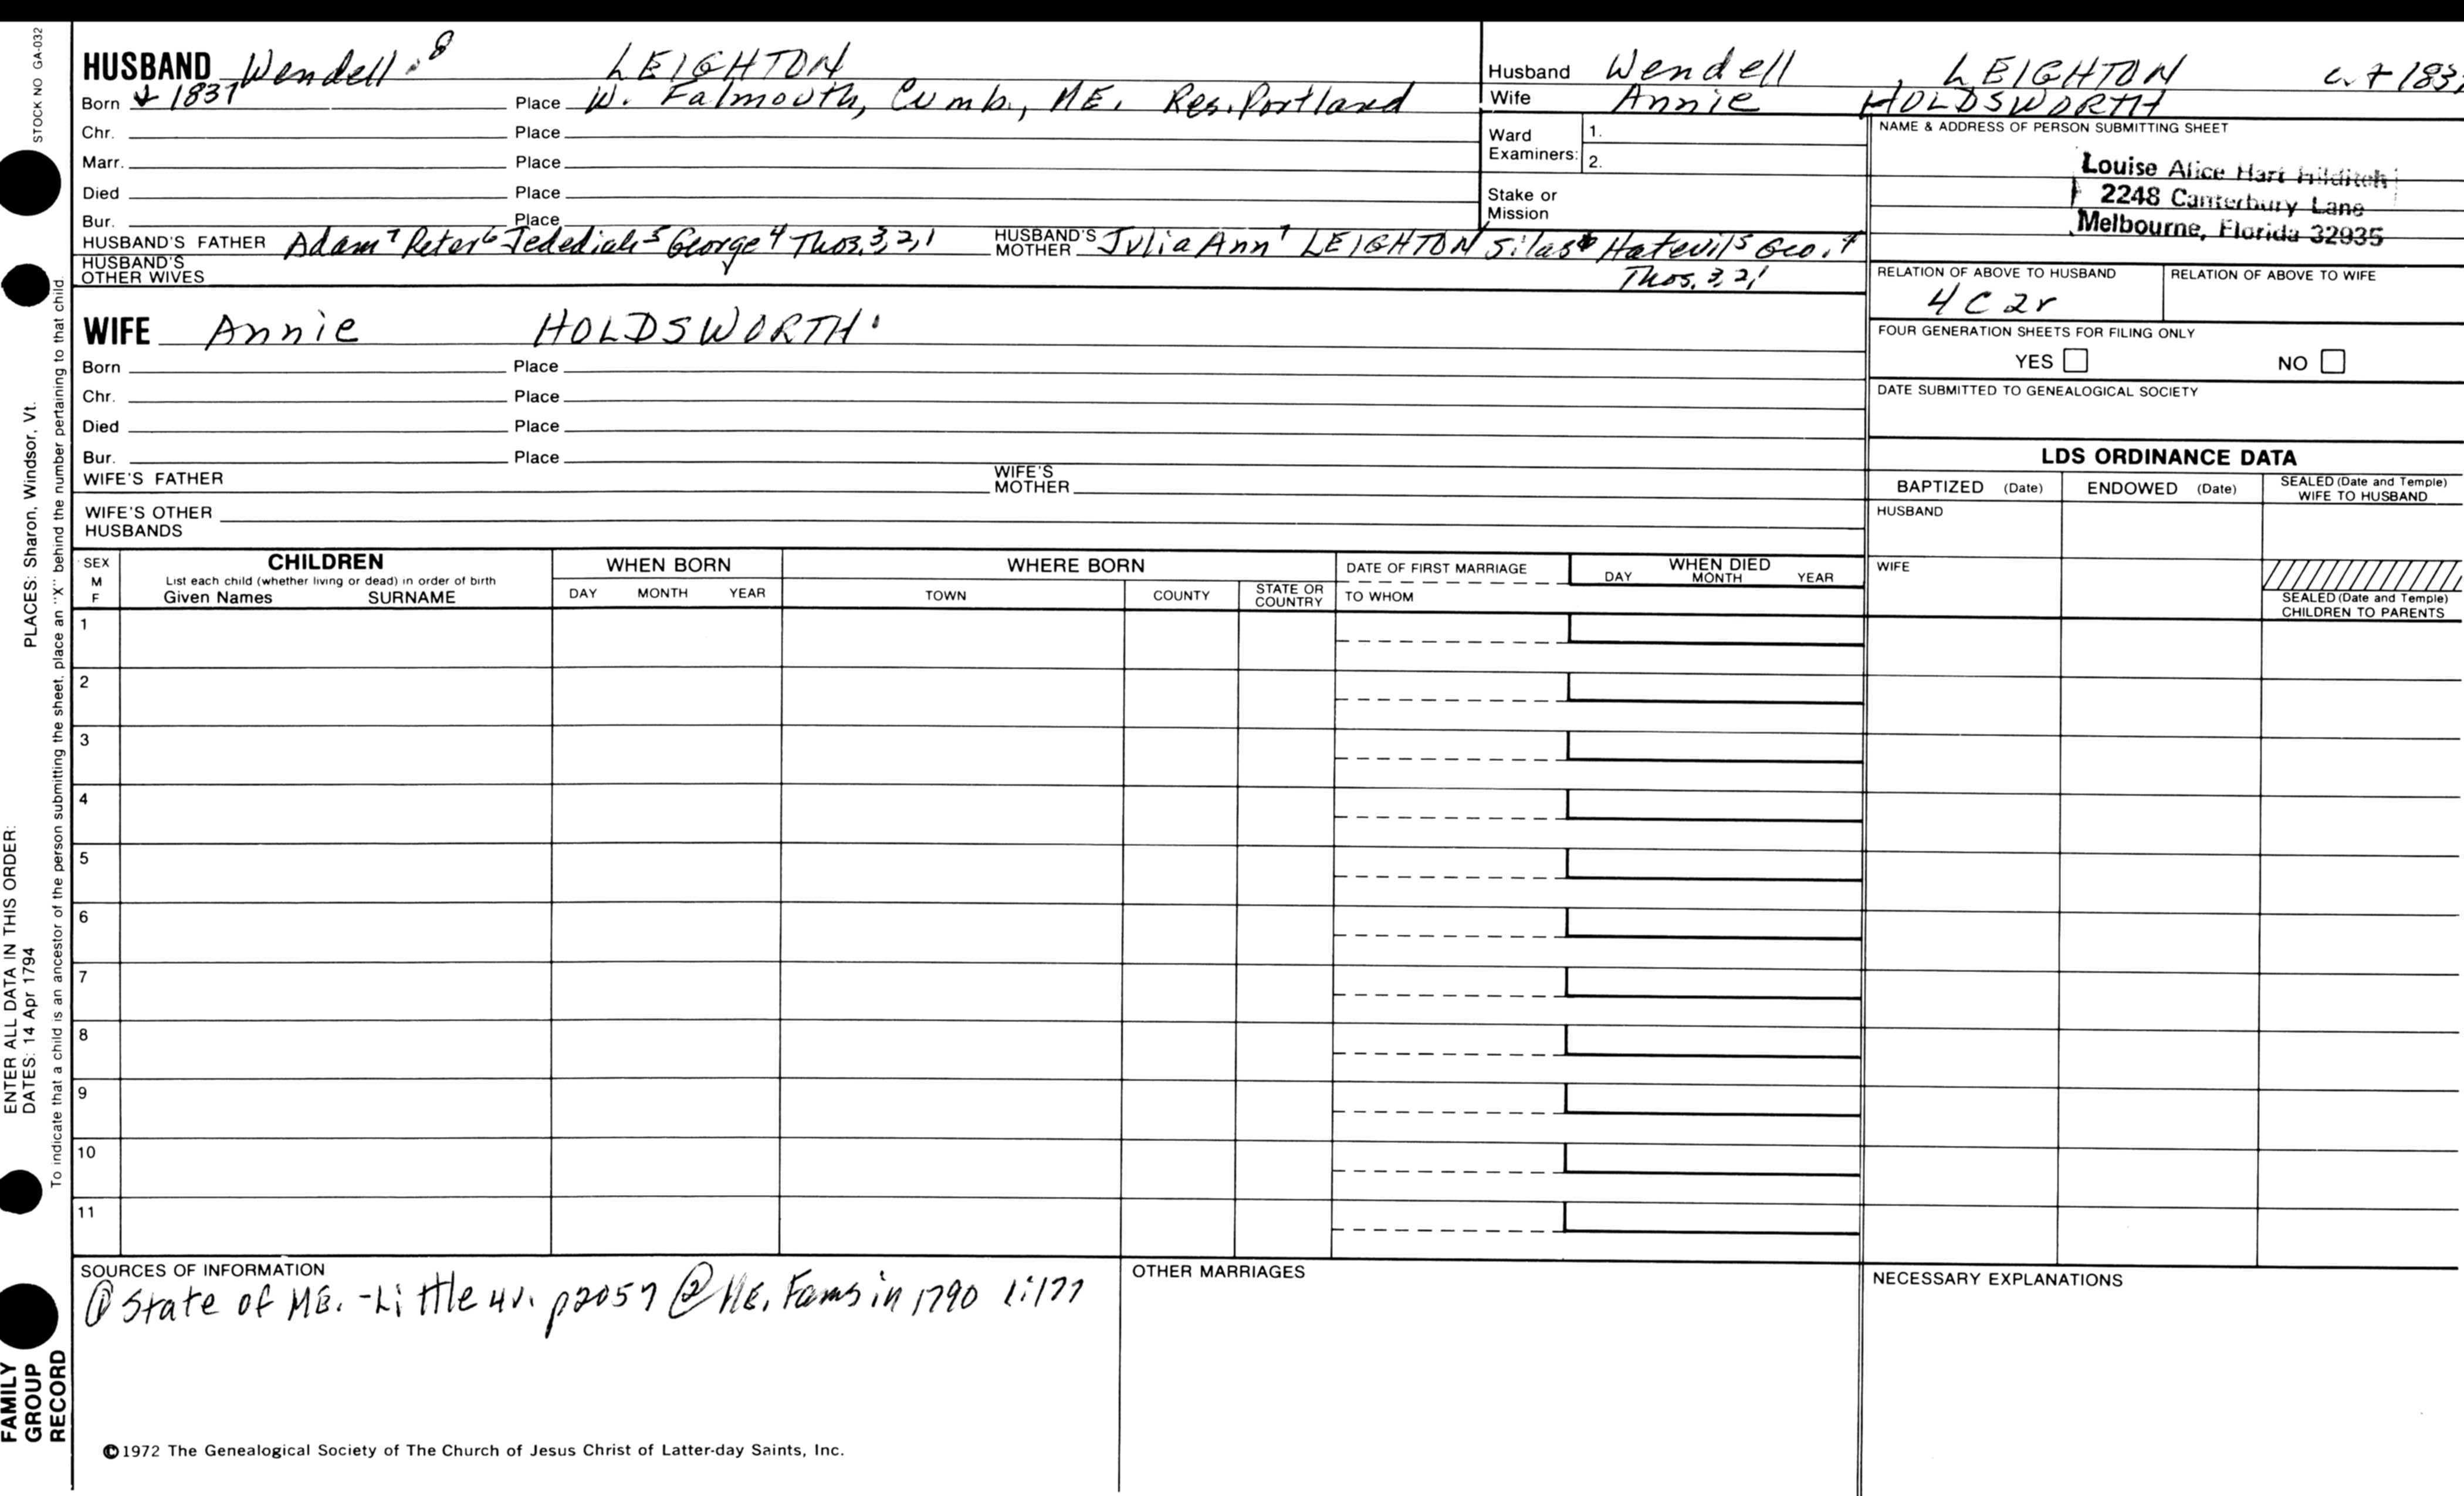 STOCK NO GA-032
HUSBAND Wendell 8 LEIGHTON
Born 1837 Place W. Falmouth, Cumb., ME. Res. Portland
Chr. Place
Marr. Place
Died Place
Bur. Place
HUSBAND'S FATHER Adam 7 Peter 6 Jedediah 5 George 4 Thos. 3, 2, 1 HUSBAND'S MOTHER Julia Ann 7 LEIGHTON Silas Hatevil 5 Geo. 4
Thos. 3, 2, 1
HUSBAND'S OTHER WIVES
Husband Wendell, LEIGHTON
Wife Annie HOLDSWORTH
Ward Examiners: 1.
2.
Stake or Mission
NAME & ADDRESS OF PERSON SUBMITTING SHEET
Louise Alice Hart Hilditch
2248 Canterbury Lane
Melbourne, Florida 32935
RELATION OF ABOVE TO HUSBAND RELATION OF ABOVE TO WIFE
4 C 2r
FOUR GENERATION SHEETS FOR FILING ONLY
YES NO
DATE SUBMITTED TO GENEALOGICAL SOCIETY
WIFE Annie HOLDSWORTH
Born Place
Chr. Place
Died Place
Bur. Place
WIFE'S FATHER WIFE'S MOTHER
WIFE'S OTHER HUSBANDS
LDS ORDINANCE DATA
BAPTIZED (Date) ENDOWED (Date) SEALED (Date and Temple) WIFE TO HUSBAND
HUSBAND
WIFE
SEALED (Date and Temple) CHILDREN TO PARENTS
SEX M F
CHILDREN
List each child (whether living or dead) in order of birth
Given Names SURNAME
WHEN BORN
DAY MONTH YEAR
WHERE BORN
TOWN COUNTY STATE OR COUNTRY
DATE OF FIRST MARRIAGE
TO WHOM
WHEN DIED
DAY MONTH YEAR
1
2
3
4
5
6
7
8
9
10
11
SOURCES OF INFORMATION
① State of ME. - Little 4v. p2057 ② ME. Fams in 1790 1:177
OTHER MARRIAGES
NECESSARY EXPLANATIONS
©1972 The Genealogical Society of The Church of Jesus Christ of Latter-day Saints, Inc.
FAMILY
GROUP
RECORD
ENTER ALL DATA IN THIS ORDER:
DATES: 14 Apr 1794 PLACES: Sharon, Windsor, Vt.
To indicate that a child is an ancestor of the person submitting the sheet, place an "X" behind the number pertaining to that child.